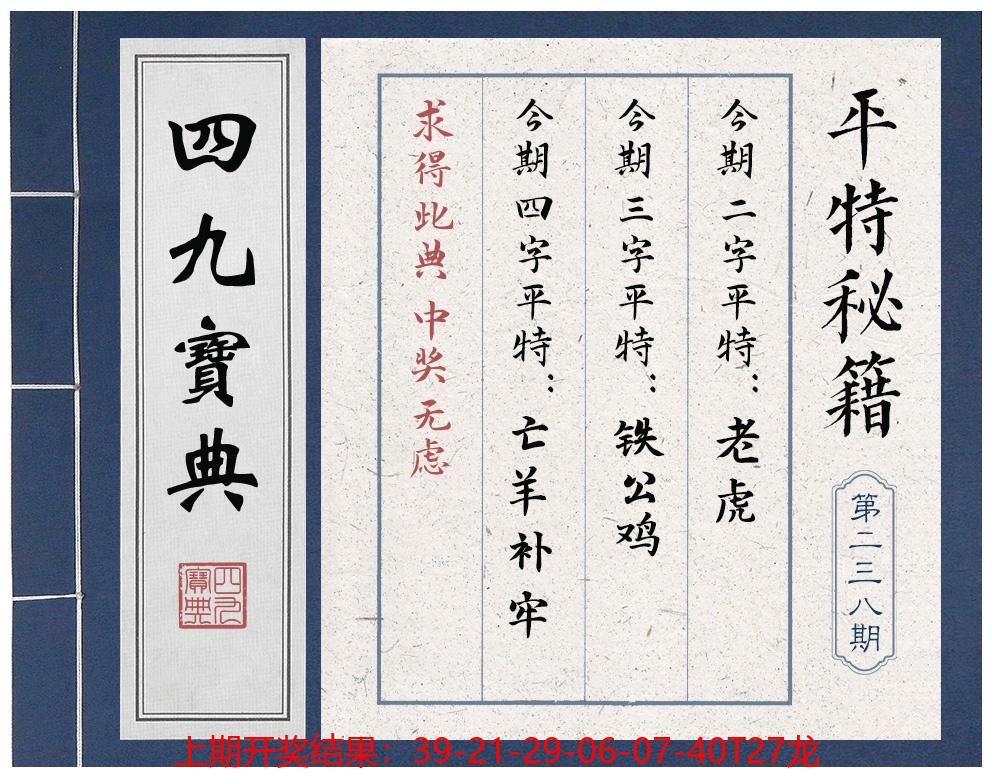 平特秘籍
第二三八期
今期二字平特：老虎
今期三字平特：铁公鸡
今期四字平特：亡羊补牢
求得此典 中奖无虑
四九寶典
四九寶典
上期开奖结果：39-21-29-06-07-40T27龙